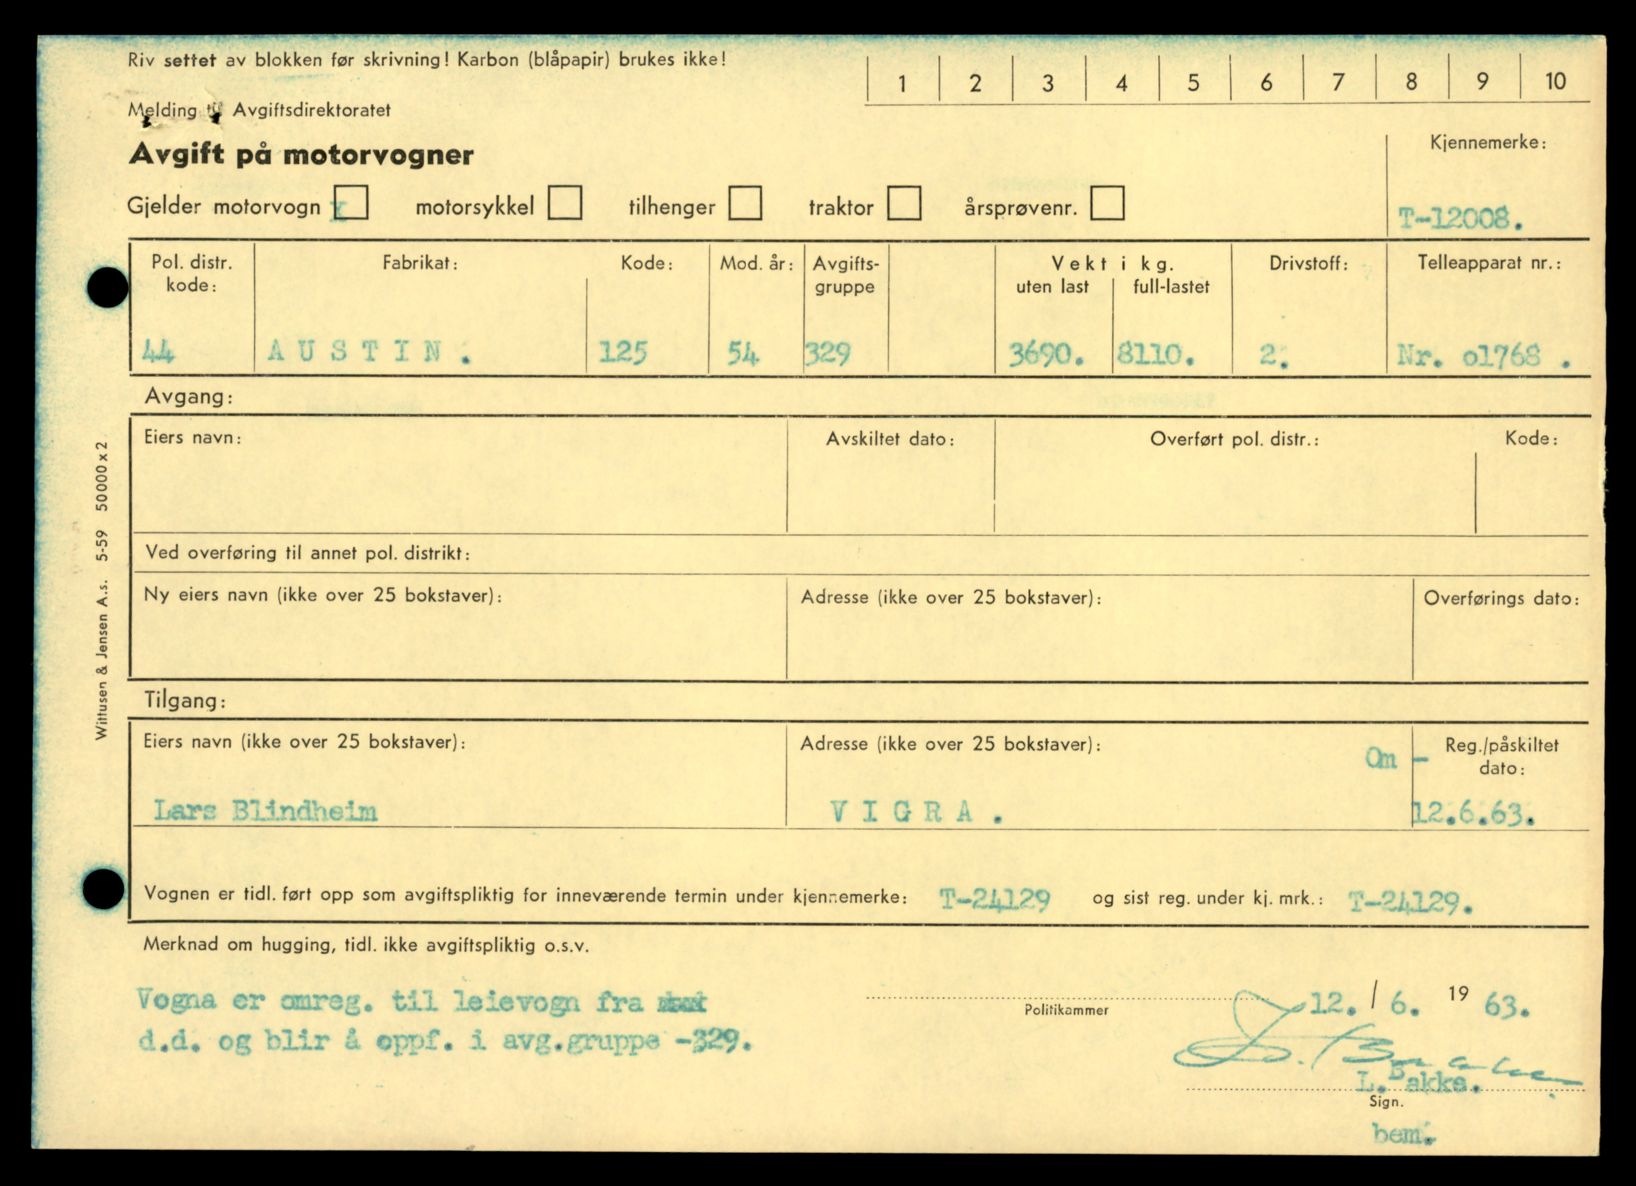 Riv settet av blokken før skrivning! Karbon (blåpapir) brukes ikke!
1 2 3 4 5 6 7 8 9 10
Melding til Avgiftsdirektoratet
Avgift på motorvogner
Kjennemerke:
Gjelder motorvogn x motorsykkel tilhenger traktor årsprøvenr.
T-12008.
Pol. distr. kode: Fabrikat: Kode: Mod. år: Avgifts-gruppe Vekt i kg. uten last full-lastet Drivstoff: Telleapparat nr.:
44 AUSTIN. 125 54 329 3690. 8110. 2. Nr. o1768 .
Avgang:
Eiers navn: Avskiltet dato: Overført pol. distr.: Kode:
Ved overføring til annet pol. distrikt:
Ny eiers navn (ikke over 25 bokstaver): Adresse (ikke over 25 bokstaver): Overførings dato:
Tilgang:
Eiers navn (ikke over 25 bokstaver): Adresse (ikke over 25 bokstaver): Om - Reg./påskiltet dato:
Lars Blindheim VIGRA. 12.6.63.
Vognen er tidl. ført opp som avgiftspliktig for inneværende termin under kjennemerke: T-24129 og sist reg. under kj. mrk.: T-24129.
Merknad om hugging, tidl. ikke avgiftspliktig o.s.v.
Vogna er omreg. til leievogn fra
d.d. og blir å oppf. i avg.gruppe -329.
Politikammer
12. / 6. 19 63.
L. Bakke
L. Bakke.
Sign.
bem.
Wittusen & Jensen A.s. 5-59 50000 x 2